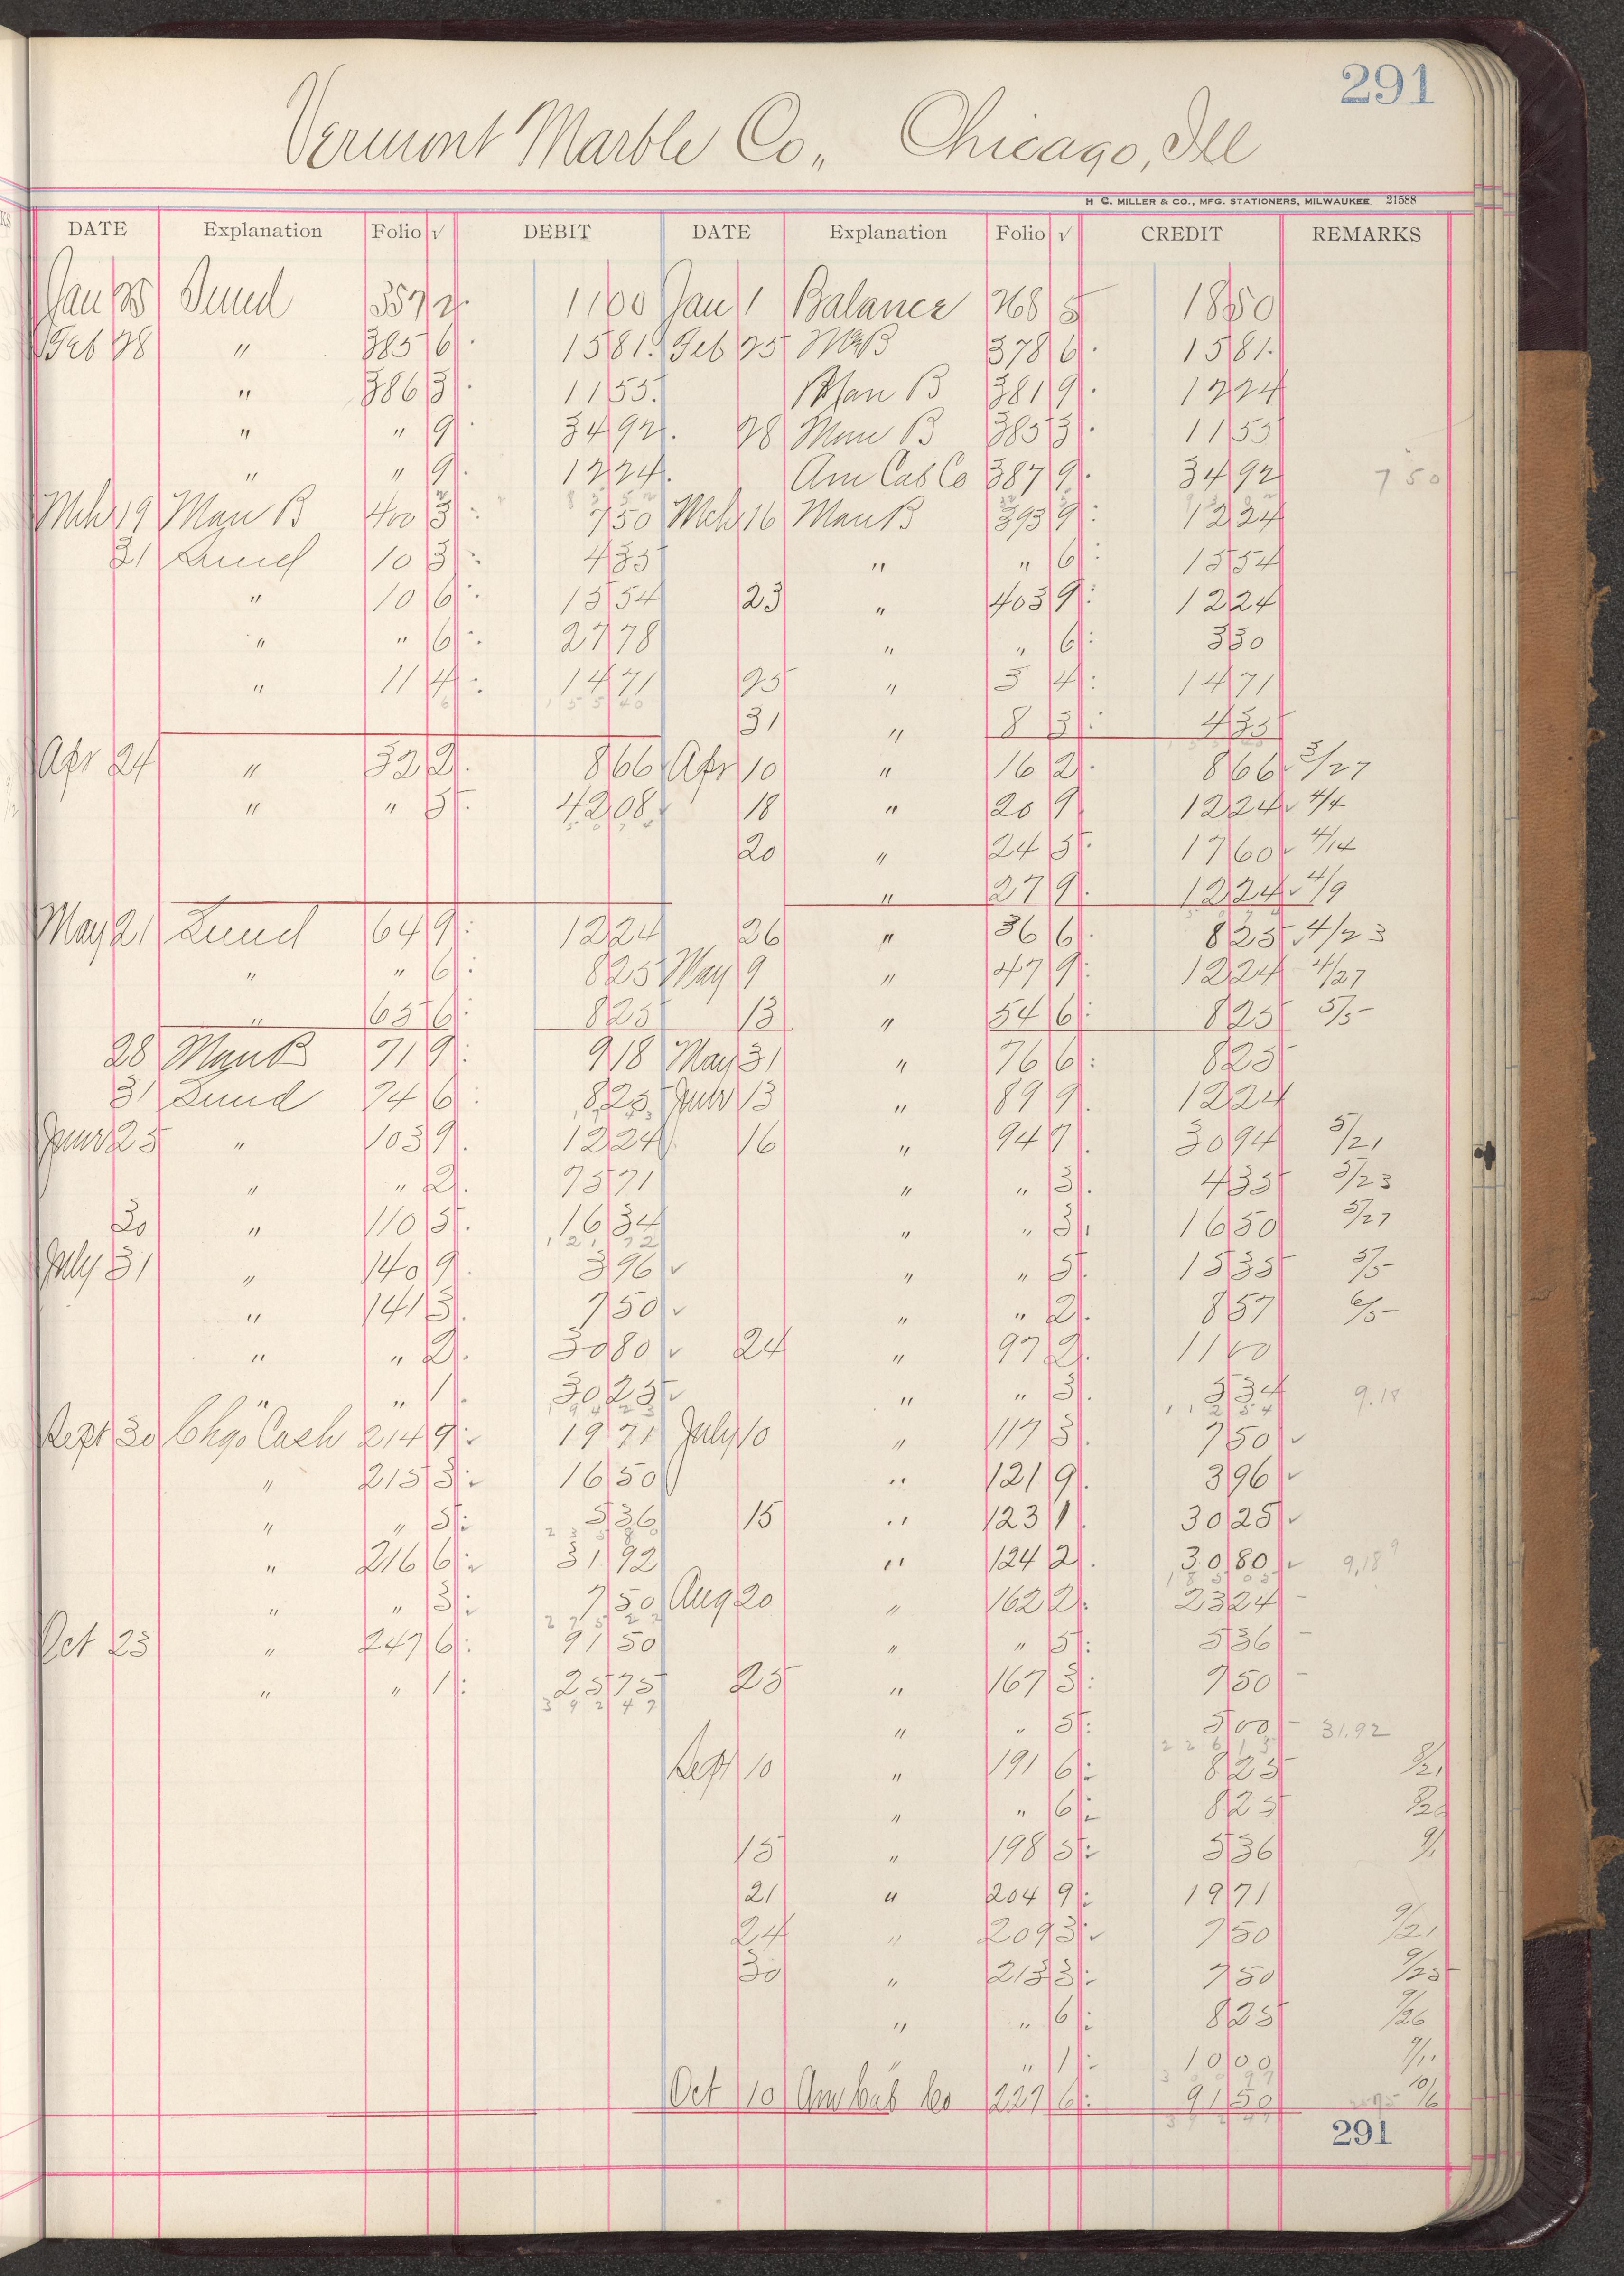 291
Vermont Marble Co,, Chicago, Ill
H C. MILLER & CO., MFG. STATIONERS, MILWAUKEE 21588
DATE Explanation Folio √ DEBIT DATE Explanation Folio √ CREDIT REMARKS
Jan 25 Sund 357 2 1100 Jan 1 Balance 268 5 1850
Feb 28 " 385 6 1581 Feb 25 378 6 1581
" 386 3 1155 Man B 381 9 1224
" " 9 3492 28 Man B 385 3 1155
" " 9 1224 Am Cab Co 387 9 3492 7 50
Mch 19 Man B 400 3 750 Mch 16 Man B 393 9 1224
31 Sund 10 3 435 " " 6 1554
" 10 6 1554 23 " 403 9 1224
" " 6 2778 " " 6 330
" 11 4 1471 25 " 5 4 1471
31 " 8 3 435
Apr 24 " 32 2 866 Apr 10 " 16 2 866 3/27
" " 5 4208 18 " 20 9 1224 4/4
20 " 24 5 1760 4/14
" 27 9 1224 4/9
May 21 Sund 64 9 1224 26 " 36 6 825 4/23
" " 6 825 May 9 " 47 9 1224 4/27
" 65 6 825 13 " 54 6 825 5/5
28 Man B 71 9 918 May 31 " 76 6 825
31 Sund 74 6 825 June 13 " 89 9 1224
June 25 " 103 9 1224 16 " 94 7 3094 5/21
" " 2 7571 " " 3 435 5/23
30 " 110 5 1634 " " 3 1650 5/27
July 31 " 140 9 396 " " 5 1535 5/5
" 141 3 750 " " 2 857 6/5
" " 2 3080 24 " 97 2 1160
" " 1 3025 " " 3 534 9.18
Sept 30 Chgo Cash 214 9 1971 July 10 " 117 3 750
" 215 3 1650 " 121 9 396
" " 5 536 15 " 123 1 3025
" 216 6 3192 " 124 2 3080 9,18
" " 3 750 Aug 20 " 162 2 2324
Oct 23 " 247 6 9150 " " 5 536
" " 1 2575 25 " 167 3 750
" " 5 500 31.92
Sept 10 " 191 6 825 8/21
" " 6 825
15 " 198 5 536 9/1
21 " 204 9 1971
24 " 209 3 750 9/21
30 " 213 3 750 9/25
" " 6 825 9/26
" " 1 1000 9/11
Oct 10 Am Cab Co 227 6 9150 10/6
291